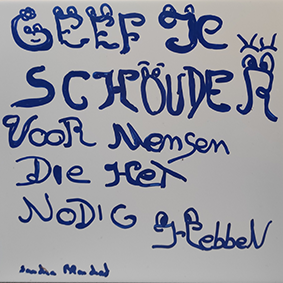 GEEF JE
SCHÖUDER
VOOR MENSEN
DIE HET
NODIG HEBBEN
Sandra